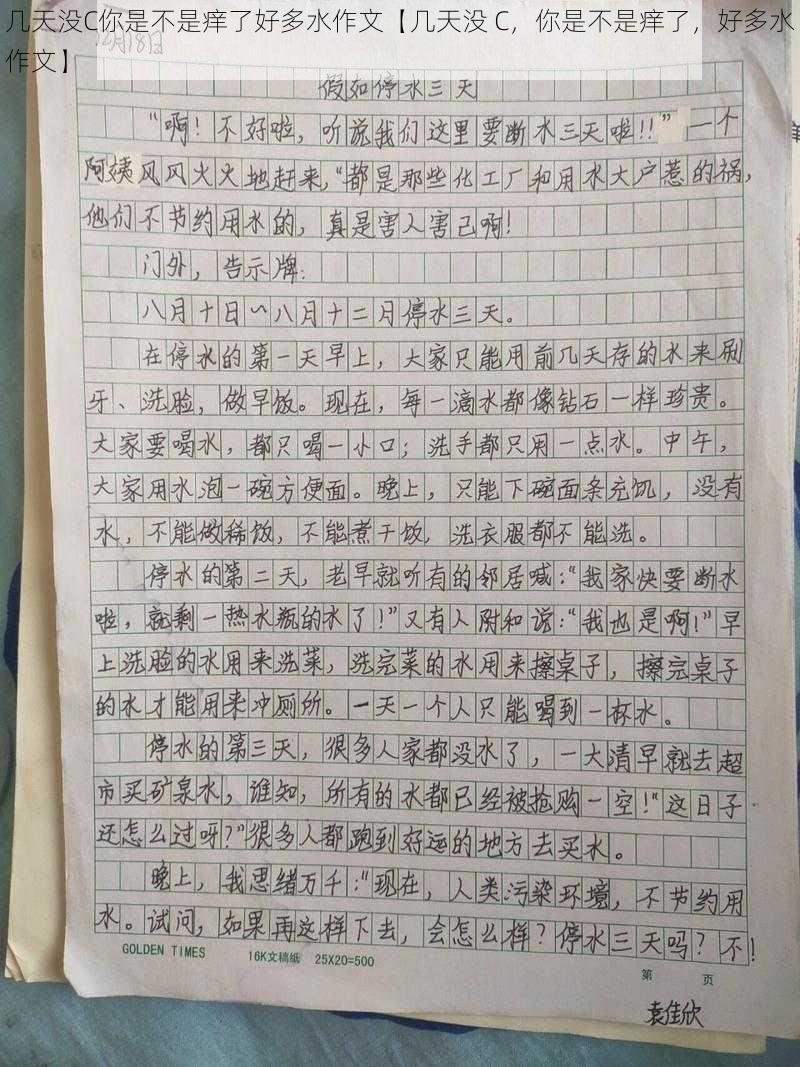 几天没C你是不是痒了好多水作文【几天没 C，你是不是痒了，好多水
作文】
12月18日
假如停水三天
“啊！不好啦，听说我们这里要断水三天啦!!”一个
阿姨风风火火地赶来，“都是那些化工厂和用水大户惹的祸，
他们不节约用水的，真是害人害己啊！
门外，告示牌：
八月十日~八月十二月停水三天。
在停水的第一天早上，大家只能用前几天存的水来刷
牙、洗脸，做早饭。现在，每一滴水都像钻石一样珍贵。
大家要喝水，都只喝一小口；洗手都只用一点水。中午，
大家用水泡一碗方便面。晚上，只能下碗面条充饥，没有
水，不能做稀饭，不能煮干饭，洗衣服都不能洗。
停水的第二天，老早就听有的邻居喊：“我家快要断水
啦，就剩一热水瓶的水了！”又有人附和说：“我也是啊！”早
上洗脸的水用来洗菜，洗完菜的水用来擦桌子，擦完桌子
的水才能用来冲厕所。一天一个人只能喝到一杯水。
停水的第三天，很多人家都没水了，一大清早就去超
市买矿泉水，谁知，所有的水都已经被抢购一空！“这日子
还怎么过呀？”很多人都跑到好远的地方去买水。
晚上，我思绪万千：“现在，人类污染环境，不节约用
水。试问，如果再这样下去，会怎么样？停水三天吗？不！
GOLDEN TIMES 16K文稿纸 25X20=500
第 页
袁佳欣